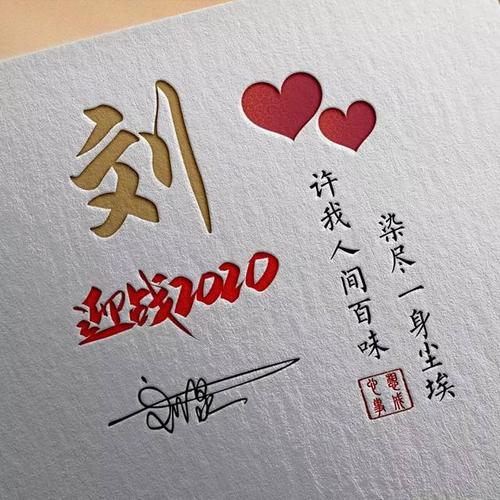 刘
迎战2020
许我人间百味
染尽一身尘埃
心想
事成